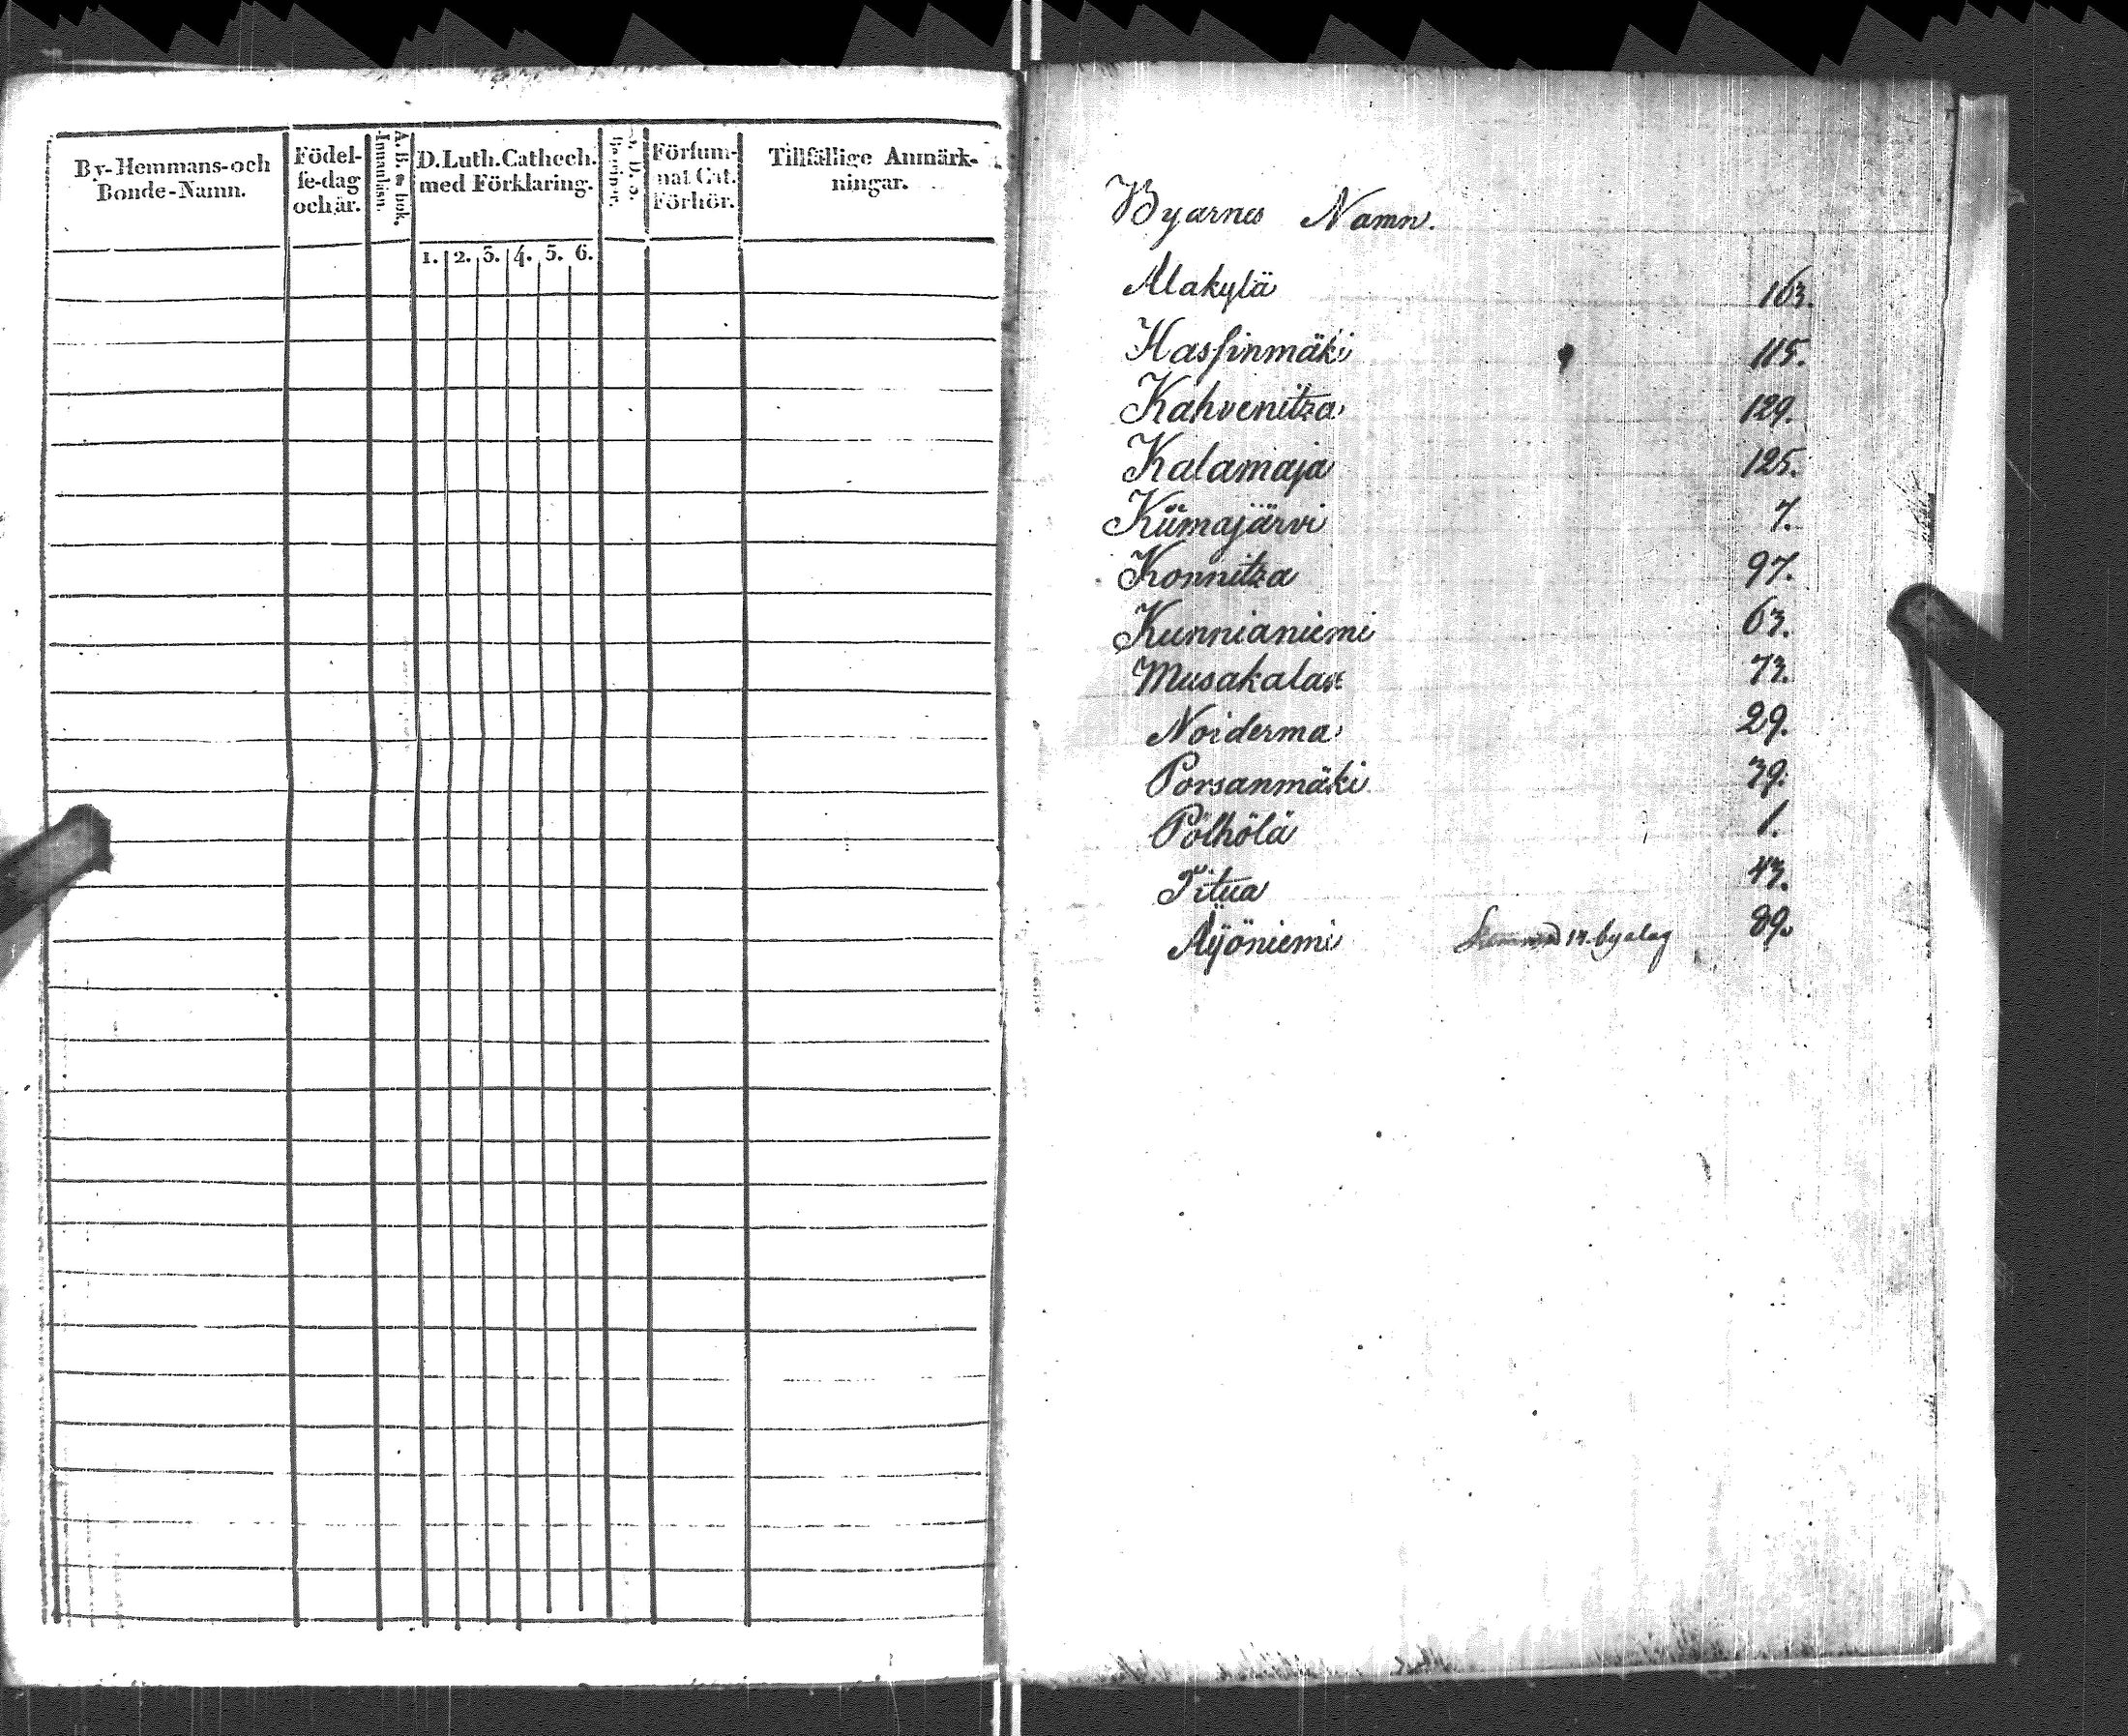 By-Hemmans-och
Bonde-Namn.
Födel-
se-dag
och år.
A. B. C bok.
Innanläsn.
D. Luth. Cathech.
med Förklaring.
1. 2. 3. 4. 5. 6.
Försum-
mat Cat.
Förhör.
Tillfällige Anmärk-
ningar.
Byarnes Namn.
Alakylä 163.
Hassinmäki 115.
Kahvenitza 129.
Kalamaja 125.
Kiimajärvi 7.
Konnitza 97.
Kunnianiemi 63.
Musakala 73.
Noiderma 29.
Porsanmäki 39.
Pölhölä 1.
Titua 43.
Äijöniemi 14. byalag 89.